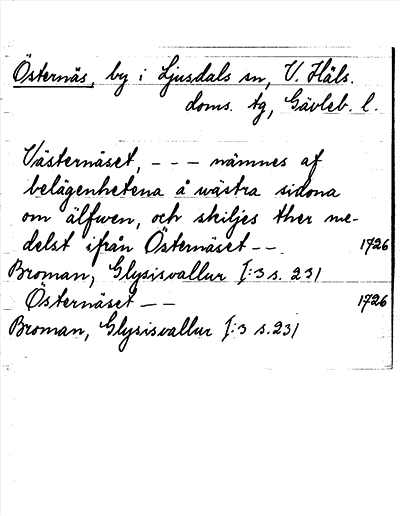 Östernäs, by i Ljusdals sn, V. Häls.
doms. tg, Gävleb. l.
Västernäset, - - - nämnes af
belägenhetena å wästra sidona
om älfwen, och skiljes ther me-
delst ifrån Östernäset - - 1726
Broman, Glysisvallur I:3 s. 231
Östernäset - - 1726
Broman, Glysisvallur I:3 s. 231